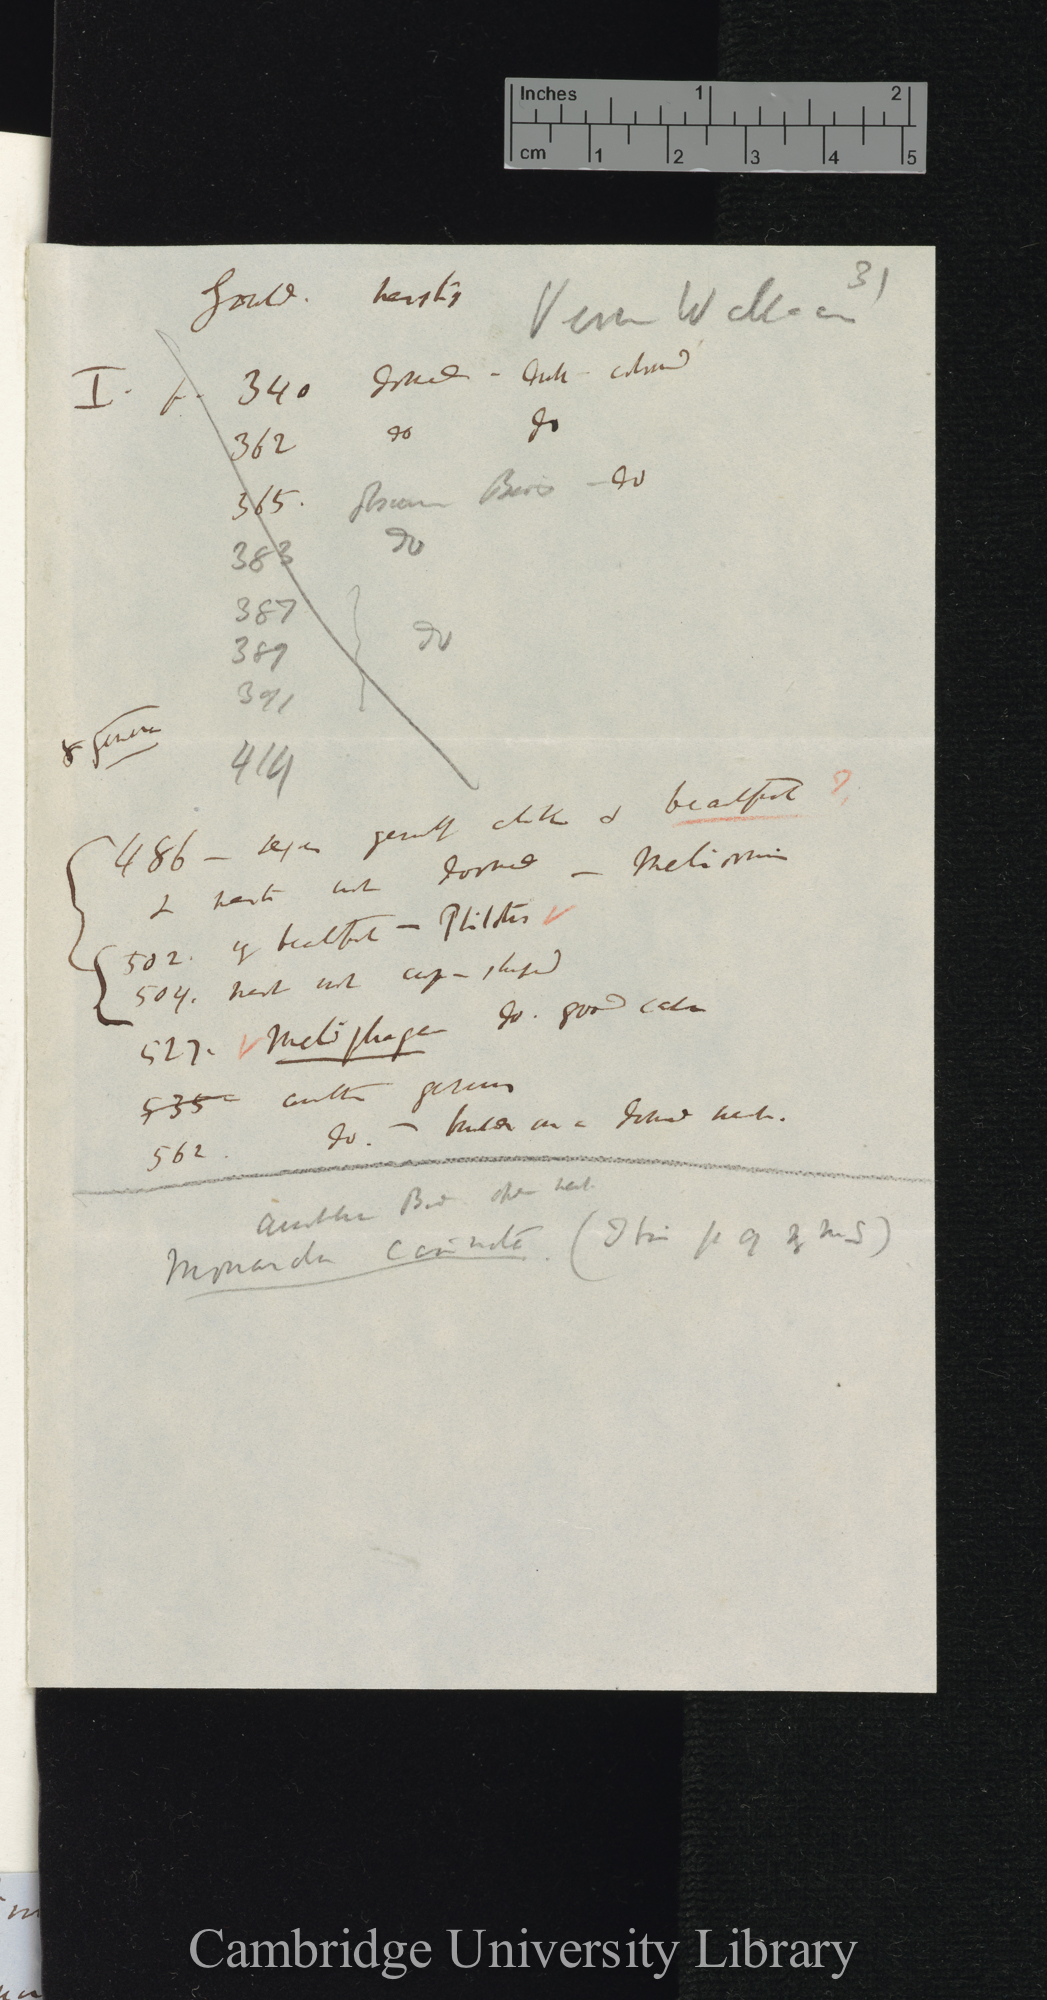 Inches 1 2
cm 1 2 3 4 5
31
Gould. nests Versus Wallace
I. p. 340 domed - dull coloured
362 do do
365. Obscure Birds - do
383 do
387
389 do
391
8 genera
414
486 - sexes generally alike & beautiful ?
& nests not domed - Meliornis
502. of beautiful - Ptilotis
504. nest not cup-shaped
527. Meliphaga do. good case
535 another genus
562. do. - builds on a domed nest.
Another Bird open nest
Monarcha carinata. (I bis p 9 of MS)
Cambridge University Library